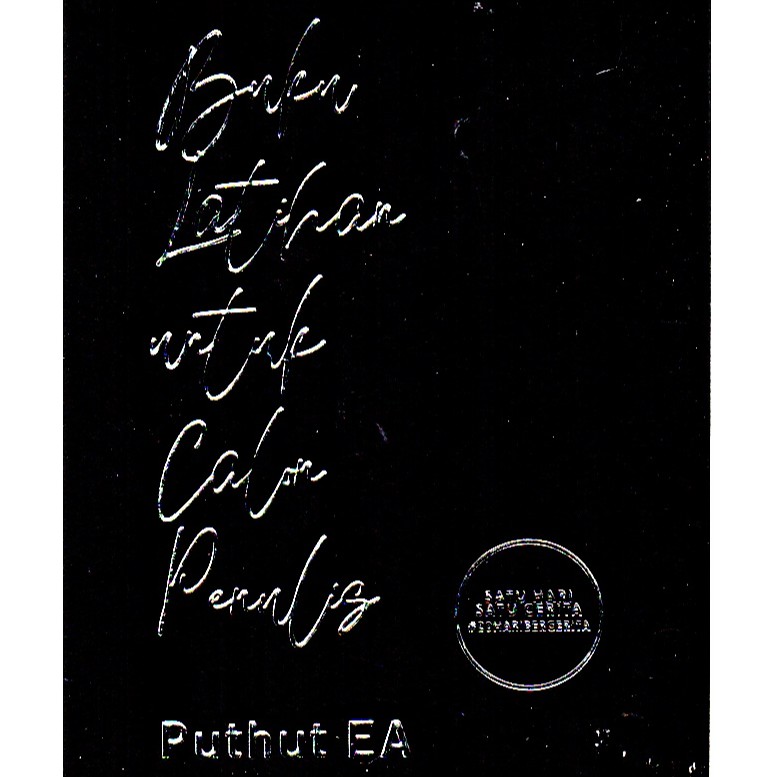 Buku
Latihan
untuk
Calon
Penulis
SATU HARI
SATU CERITA
Puthut EA